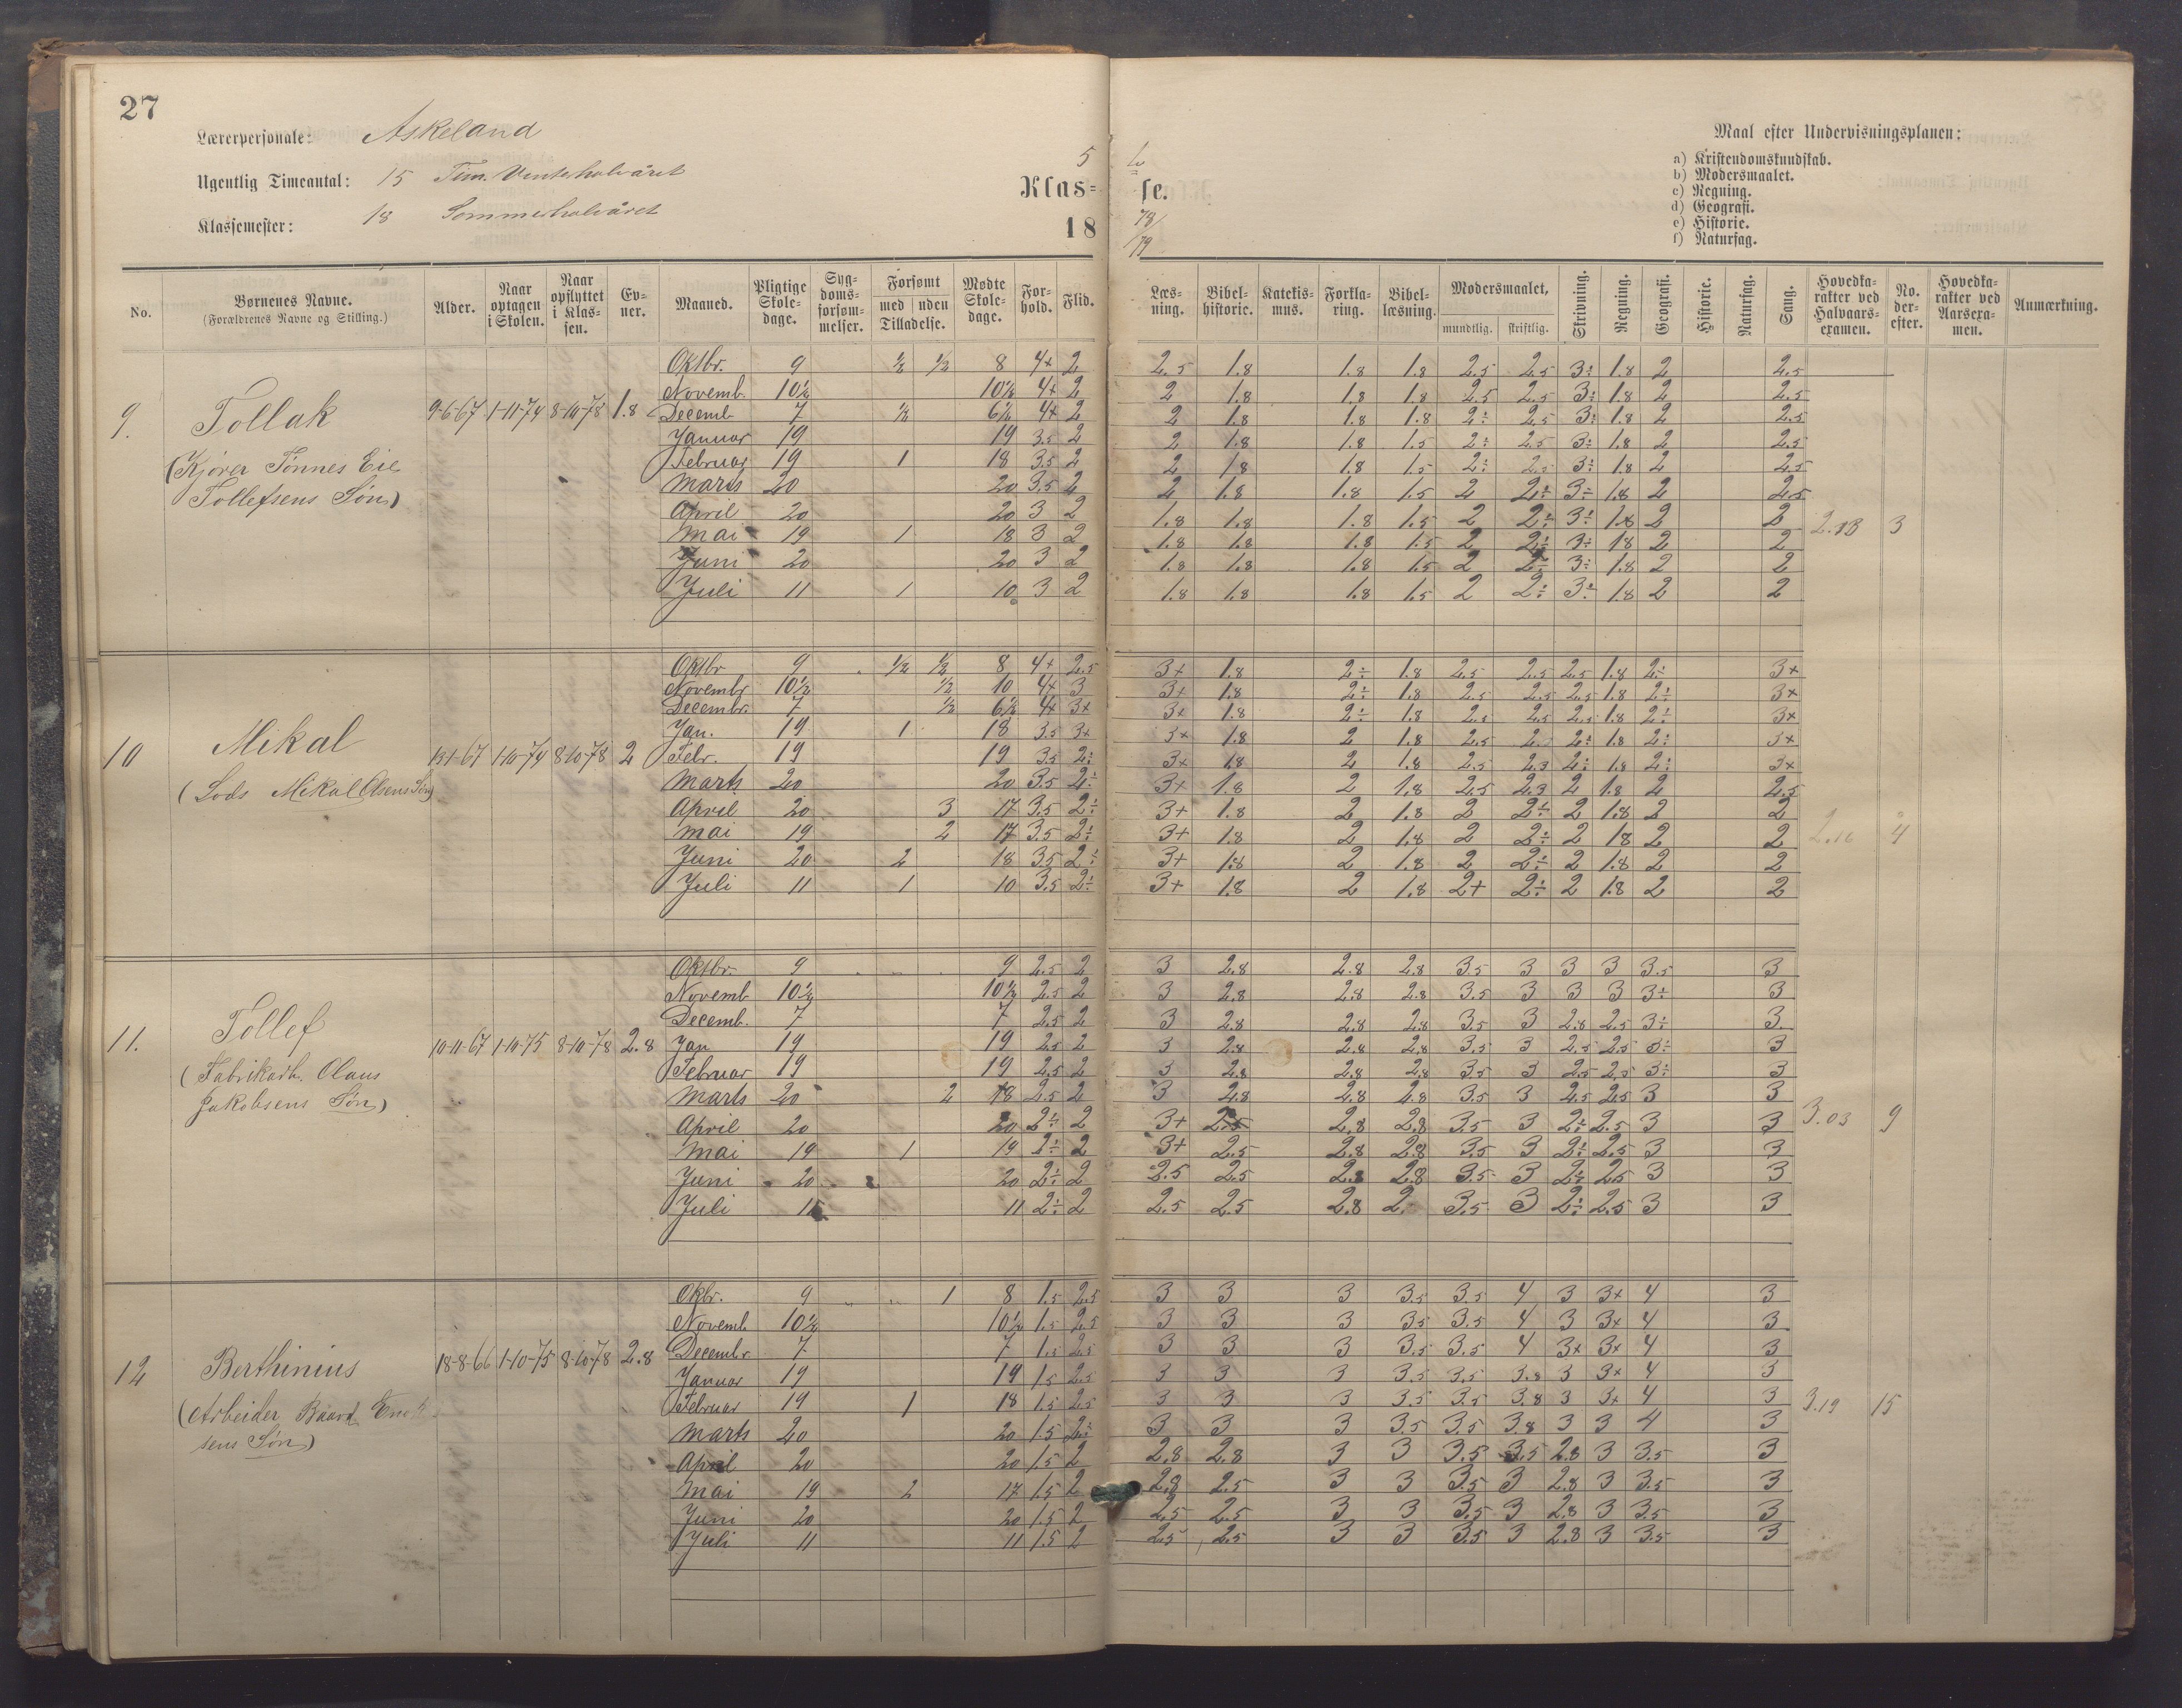 27
Lærerpersonale: Askeland
Ugentlig Timeantal: 15 Tim. Vinterhalvåret
Klassemester: 18 Sommerhalvåret
5 b
Klas= se.
18 78/79
Maal efter Undervisningsplanen:
a) Kristendomskundskab.
b) Modersmaalet.
c) Regning.
d) Geografi.
e) Historie.
f) Naturfag.
No. Børnenes Navne. (Forældrenes Navne og Stilling.) Alder. Naar optagen i Skolen. Naar opflyttet i Klassen. Evner. Maaned. Pligtige Skoledage. Sygdomsforsømmelser. Forsømt med nden Tilladelse. Mødte Skoledage. Forhold. Flid. Læsning. Bibelhistorie. Katekismus. Forklaring. Bibellæsning. Modersmaalet, mundtlig. skriftlig. Skrivning. Regning. Geografi. Historie. Naturfag. Sang. Hovedkarakter ved Halvaarsexamen. No. derefter. Hovedkarakter ved Aarsexamen. Anmærkning.
9. Tollak 9-6-67 1-11-74 8-10-78 1.8
(Kjører Tønnes Eie
Tollefsens Søn)
Oktbr. 9 ½ ½ 8 4+ 2 2.5 1.8 1.8 1.8 2.5 2.5 3÷ 1.8 2 2.5
Novemb. 10½ 10½ 4+ 2 2 1.8 1.8 1.8 2.5 2.5 3÷ 1.8 2 2.5
Decemb. 7 ½ 6½ 4+ 2 2 1.8 1.8 1.8 2÷ 2.5 3÷ 1.8 2 2.5
Januar 19 19 3.5 2 2 1.8 1.8 1.5 2÷ 2.5 3÷ 1.8 2 2.5
Februar 19 1 18 3.5 2 2 1.8 1.8 1.5 2÷ 2.5 3÷ 1.8 2 2.5
Marts 20 20 3.5 2 2 1.8 1.8 1.5 2 2÷ 3÷ 1.8 2 2.5
April 20 20 3 2 1.8 1.8 1.8 1.5 2 2÷ 3÷ 1.8 2 2 3
Mai 19 1 18 3 2 1.8 1.8 1.8 1.5 2 2÷ 3÷ 1.8 2 2
Juni 20 20 3 2 1.8 1.8 1.8 1.5 2 2÷ 3÷ 1.8 2 2
Juli 11 1 10 3 2 1.8 1.8 1.8 1.5 2 2÷ 3÷ 1.8 2 2
10 Mikal 13-1-67 1-10-74 8-10-78 2
(Lods Mikal Olsens Søn)
Oktbr 9 ½ ½ 8 4+ 2.5 3+ 1.8 2÷ 1.8 2.5 2.5 2.5 1.8 2÷ 3+
Novembr 10½ ½ 10 4+ 3 3+ 1.8 2÷ 1.8 2.5 2.5 2.5 1.8 2÷ 3+
Decembr. 7 ½ 6½ 4+ 3+ 3+ 1.8 2÷ 1.8 2.5 2.5 2.5 1.8 2÷ 3+
Jan. 19 1 18 3.5 3+ 3+ 1.8 2 1.8 2.5 2÷ 1.8 2÷ 3+
Febr. 19 19 3.5 2÷ 3+ 1.8 2 1.8 2.5 2.3 2÷ 1.8 2÷ 3+
Marts 20 20 3.5 2÷ 3+ 1.8 2 1.8 2.5 2.3 2 1.8 2 2.5
April 20 3 17 3.5 2÷ 3+ 1.8 2 1.8 2 2÷ 2 1.8 2 2
Mai 19 2 17 3.5 2÷ 3+ 1.8 2 1.8 2 2÷ 2 1.8 2 2 2.16 4
Juni 20 2 18 3.5 2÷ 3+ 1.8 2 1.8 2 2÷ 2 1.8 2 2
Juli 11 1 10 3.5 2÷ 3+ 1.8 2 1.8 2+ 2÷ 2 1.8 2 2
11. Tollef 10-11-67 1-10-75 8-10-78 2.8
(Fabrikarb. Olaus
Jakobsens Søn)
Oktbr. 9 9 2.5 2 3 2.8 2.8 2.8 3.5 3 3 3 3.5 3
Novemb 10½ 10½ 2.5 2 3 2.8 2.8 2.8 3.5 3 3 3 3÷ 3
Decemb. 7 7 2.5 2 3 2.8 2.8 2.8 3.5 3 2.8 2.5 3÷ 3
Jan 19 19 2.5 2 3 2.8 2.8 2.8 3.5 3 2.5 2.5 3÷ 3
Februar 19 19 2.5 2 3 2.8 2.8 2.8 3.5 3 2.5 2.5 3÷ 3
Marts 20 2 18 2.5 2 3 2.8 2.8 2.8 3.5 3 2.5 2.5 3 3
April 20 20 2÷ 2 3+ 2.5 2.8 2.8 3.5 3 2÷ 2.5 3 3 3.03 9
Mai 19 1 19 2÷ 2 3+ 2.5 2.8 2.8 3.5 3 2÷ 2.5 3 3
Juni 20 20 2÷ 2 2.5 2.5 2.8 2.8 3.5 3 2÷ 2.5 3 3
Juli 11 2÷ 2 2.5 2.5 2.8 2. 3.5 3 2÷ 2.5 3 3
12 Berthinius 18-8-66 1-10-75 8-10-78 2.8
(Arbeider Baard
sens Søn)
Okbr. 9 1 8 1.5 2.5 3 3 3 3.5 3.5 4 3 3+ 4 3
Novemb. 10½ 10½ 1.5 2.5 3 3 3 3.5 3.5 4 3 3+ 4 3
Decembr 7 7 1.5 2.5 3 3 3 3.5 3.5 4 3+ 3+ 4 3
Januar 19 19 1.5 2.5 3 3 3 3.5 3.5 3.8 3 3+ 4 3
Februar 19 1 18 1.5 2.5 3 3 3 3.5 3.5 3.8 3 3+ 4 3 3.19 15
Marts 20 20 1.5 2÷ 3 3 3 3.5 3.5 3.8 3 3 4 3
April 20 20 1.5 2 2.8 2.8 3 3 3.5 3.5 2.8 3 3.5 3
Mai 19 2 17 1.5 2 2.8 2.5 3 3 3.5 3 2.8 3 3.5 3
Juni 20 20 1.5 2 2.5 2.5 3 3 3.5 3 2.8 3 3.5 3
Juli 11 11 1.5 2 2.5 2.5 3 3 3.5 3 2.8 3 3.5 3